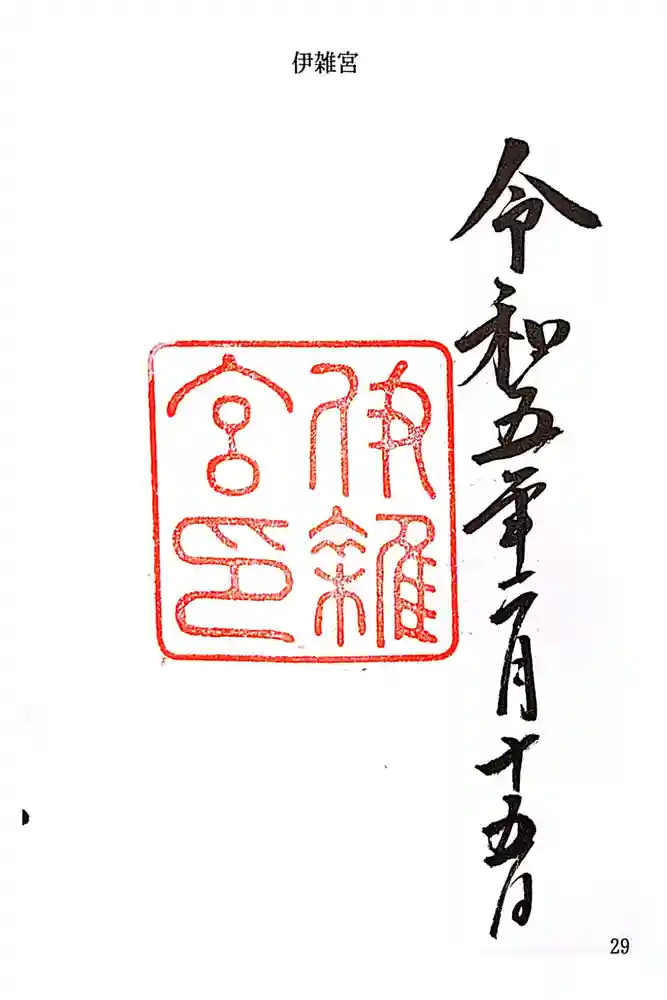 伊雑宮
令和五年二月十五日
伊雜
宮印
29